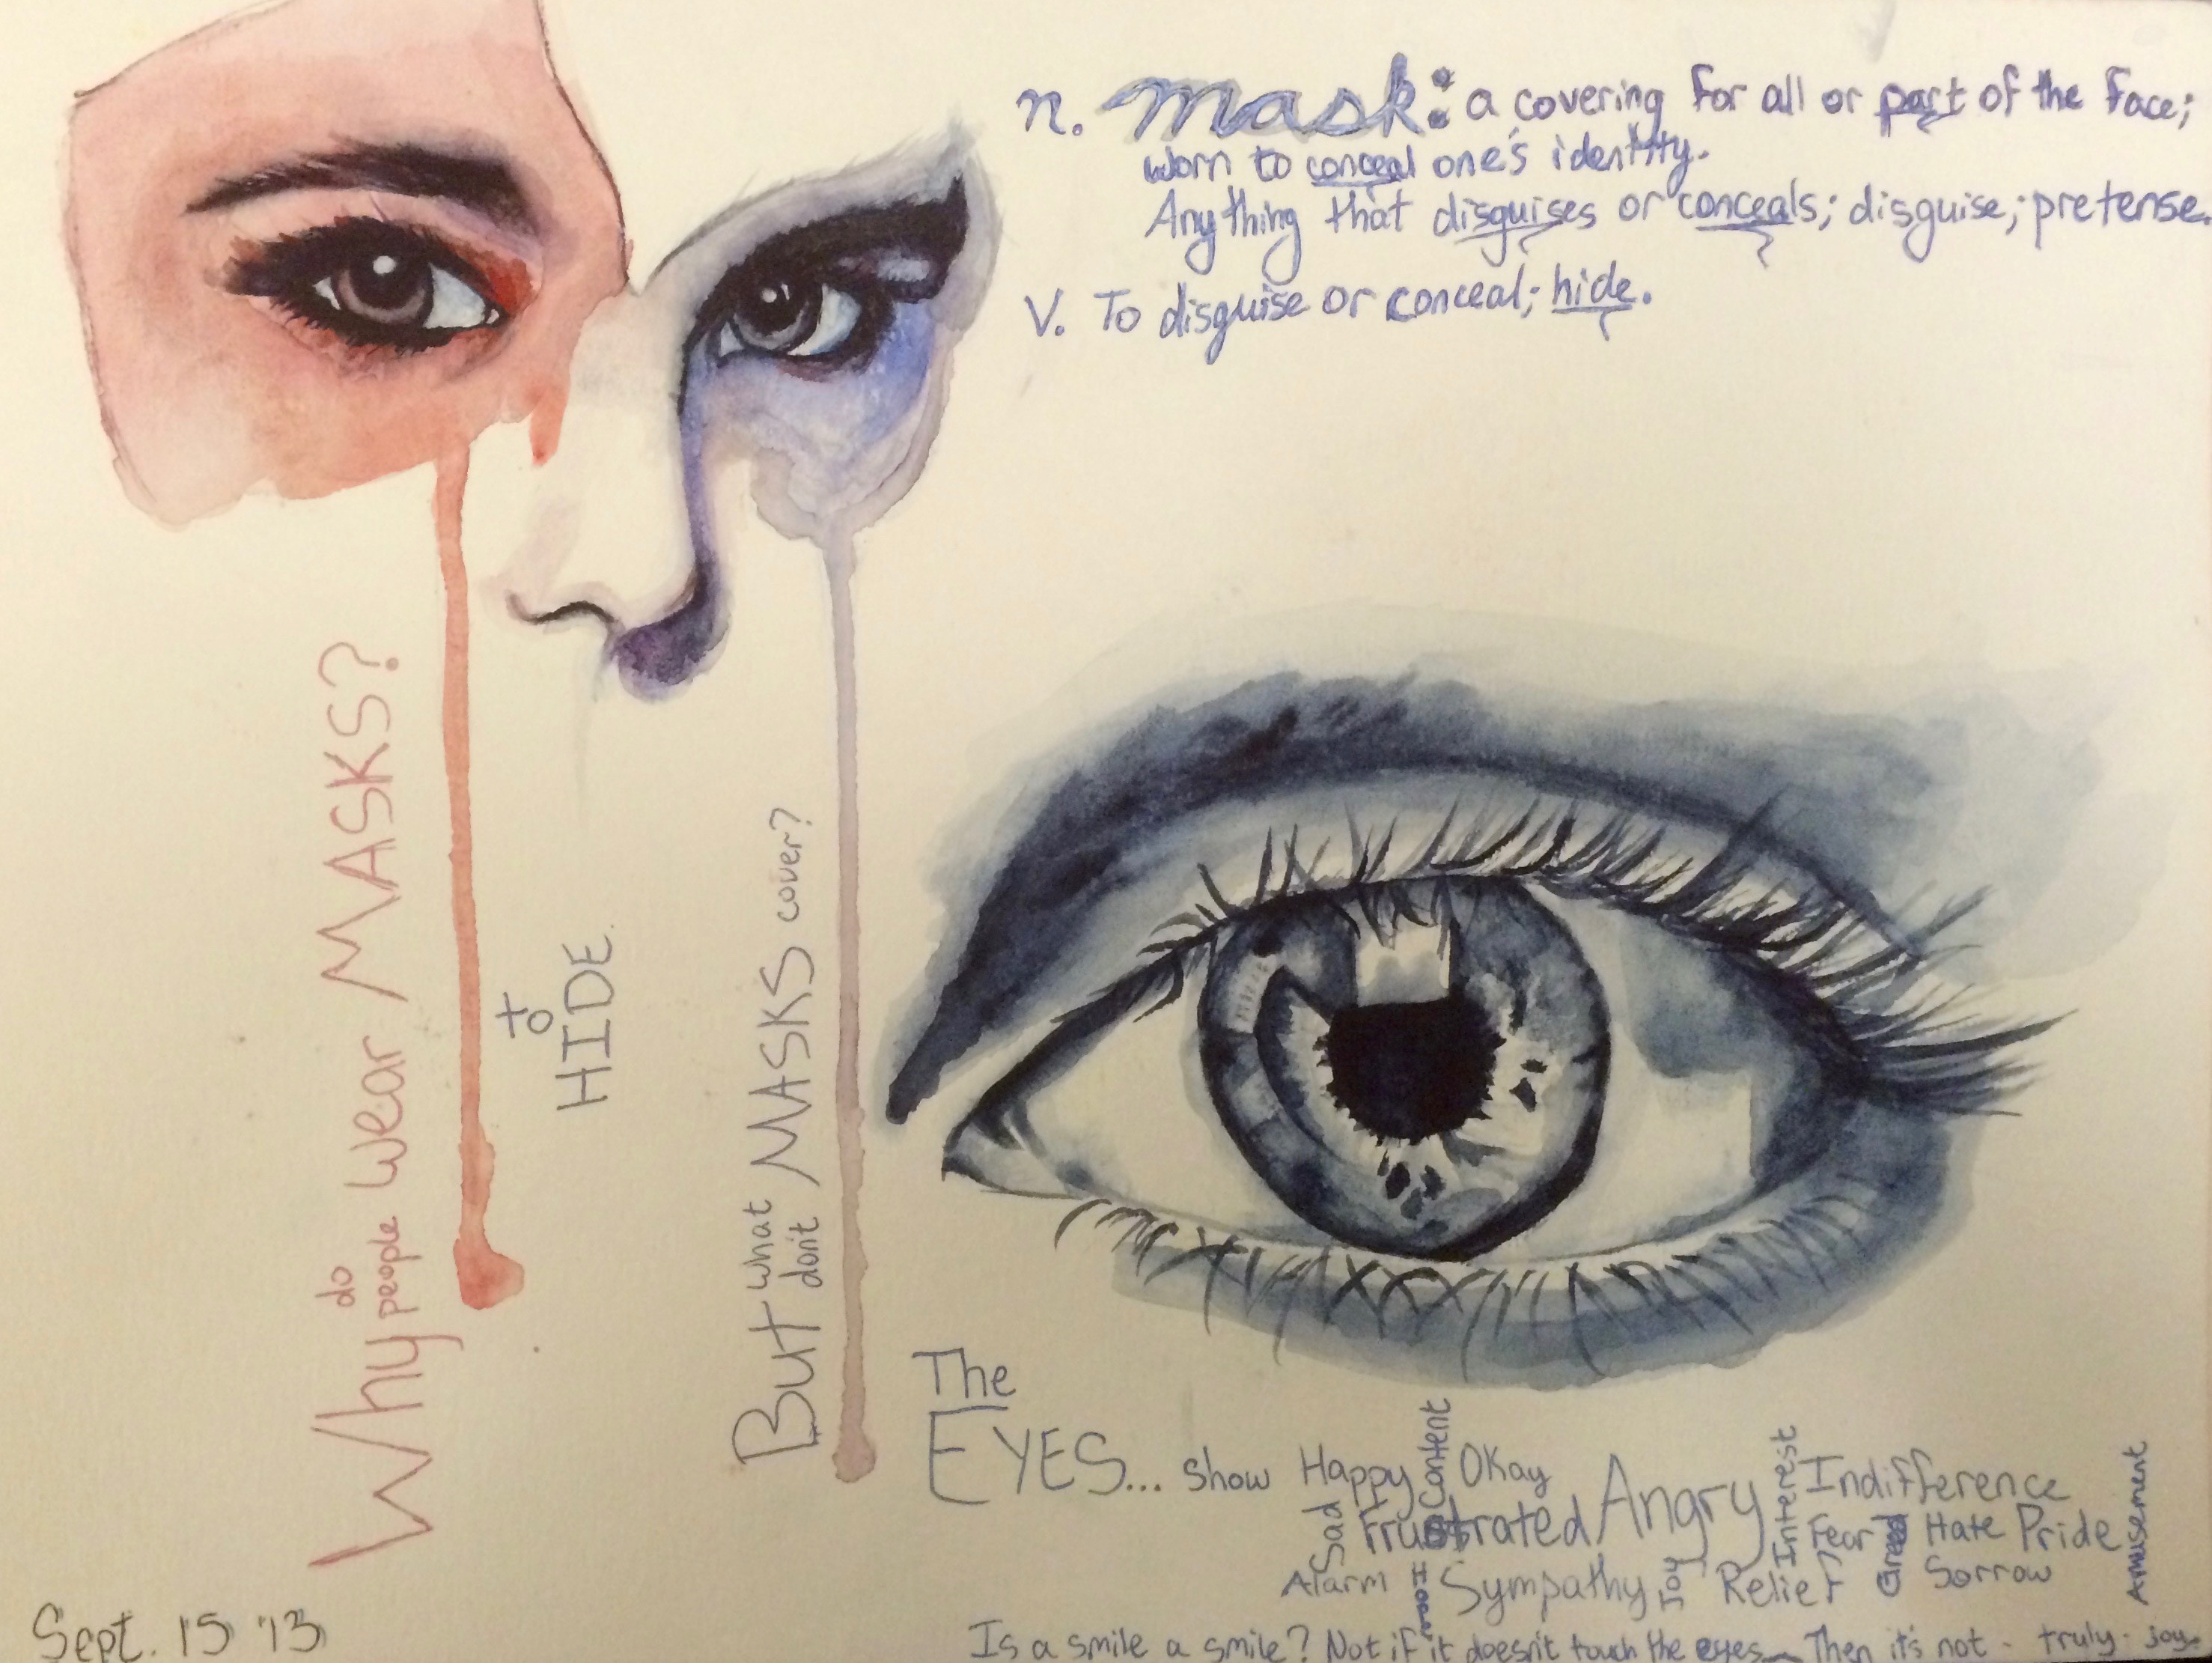 n. mask: a covering for all or part of the face;
worn to conceal one's identity.
Anything that disguises or conceals; disguise; pretense.
V. To disguise or conceal; hide.
Why do people wear MASKS?
to
HIDE.
But what don't MASKS cover?
The
EYES... show Happy Content Okay Angry Interest Indifference
Sad Frustrated Fear Greed Hate Pride Amusement
Alarm Horror Sympathy Joy Relief Sorrow
Is a smile a smile? Not if it doesn't touch the eyes Then it's not - truly - joy.
Sept. 15 '13